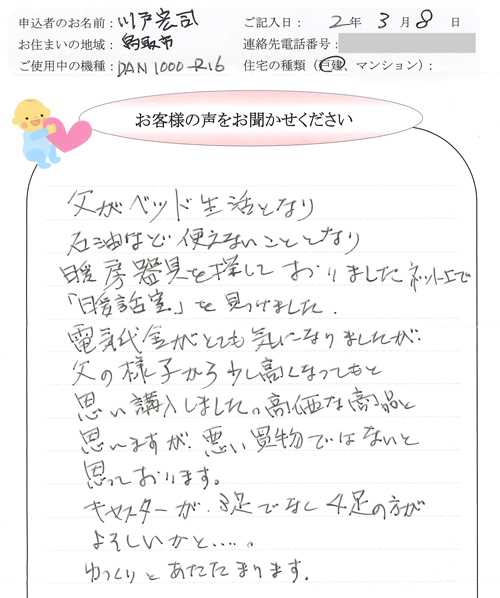 申込者のお名前：川戸宏司
ご記入日： 2年 3月 8日
お住まいの地域：鳥取市
連絡先電話番号：
ご使用中の機種：DAN1000-R16
住宅の種類（戸建、マンション）：
お客様の声をお聞かせください
父がベッド生活となり
石油など使えないこととなり
暖房器具を探しておりましたネット上で
「暖話室」を見つけました.
電気代金がとても気になりましたが.
父の様子から少し高くなってもと
思い講入しました。高価な商品と
思いますが.悪い買物ではないと
思っております。
キャスターが.3足でなし4足の方が
よろしいかと.....。
ゆっくりとあたたまります.